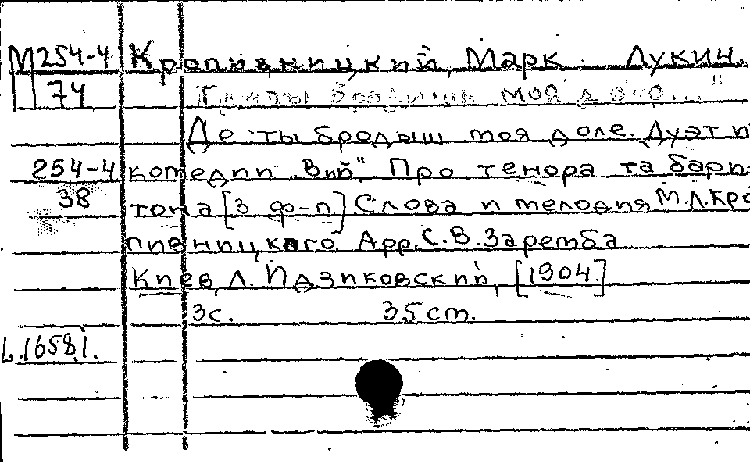 М 254-4 Кропивницкий, Марк Лукич.
74 моя доле..."
Де ты бродыш моя доле. Дуэт и
254-4 комедии „Вий" Про тенора та бари
38 тона [з ф-п] Слова и мелодия М.Л.Кро
пивницкого Арр. С.В.Заремба
Киев, Л. Идзиковский, [1904]
3с. 35 ст.
L.1658.1.